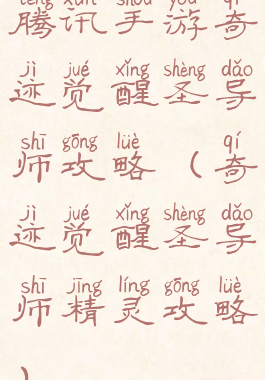 téng xùn shǒu yóu qí
腾讯手游奇
jì jué xǐng shèng dǎo
迹觉醒圣导
shī gōng lüè qí
师攻略（奇
jì jué xǐng shèng dǎo
迹觉醒圣导
shī jīng líng gōng lüè
师精灵攻略
）